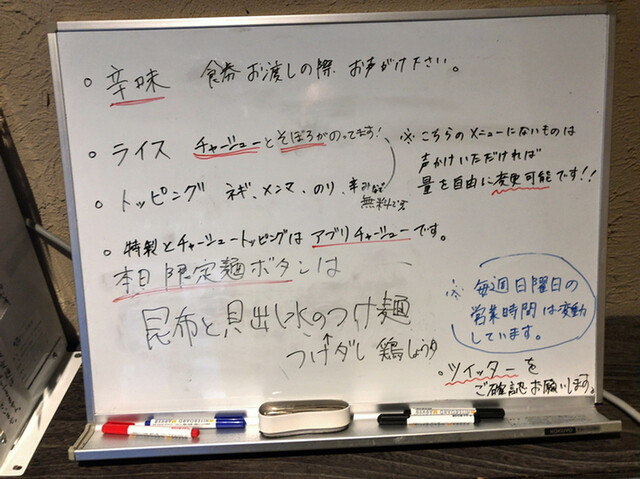 ○ 辛味 食券お渡しの際、お声がけ下さい。
○ ライス チャーシューとそぼろがのってます!
※こちらのメニューにないものは
声かけいただければ
量を自由に変更可能です!!
○ トッピング ネギ、メンマ、のり、辛みなど
無料です
○ 特製とチャーシュートッピングはアブリチャーシューです。
本日限定麺ボタンは
昆布と貝出し水のつけ麺
つけダレ 鶏しょうゆ
※ 毎週日曜日の
営業時間は変動
しています。
○ツイッターを
ご確認お願いします。
KOKUYO